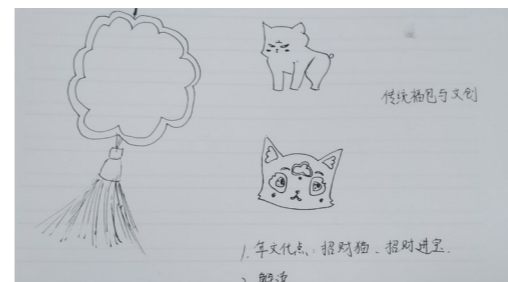 传统福包与文创
1. 年文化点、招财猫、招财进宝.
2. 解渎